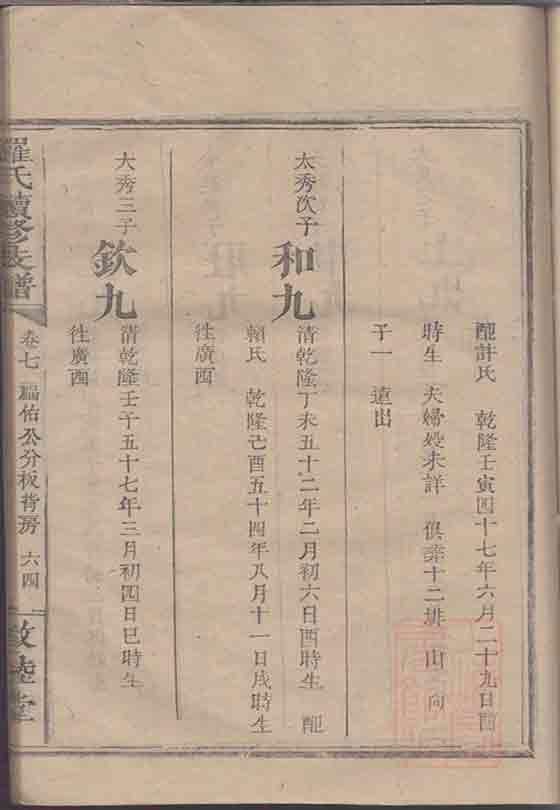 配許氏 乾隆壬寅四十七年六月二十九日酉
時生 夫婦歿未詳 俱葬十二排 山 向
子一 遠出
太秀次子
和九
清乾隆丁未五十二年二月初六日酉時生 配
賴氏 乾隆己酉五十四年八月十一日戌時生
徃廣西
太秀三子
欽九
清乾隆壬午五十七年三月初四日巳時生
徃廣西
羅氏續修支譜
卷七 福佑公分板背房 六四
敦睦堂